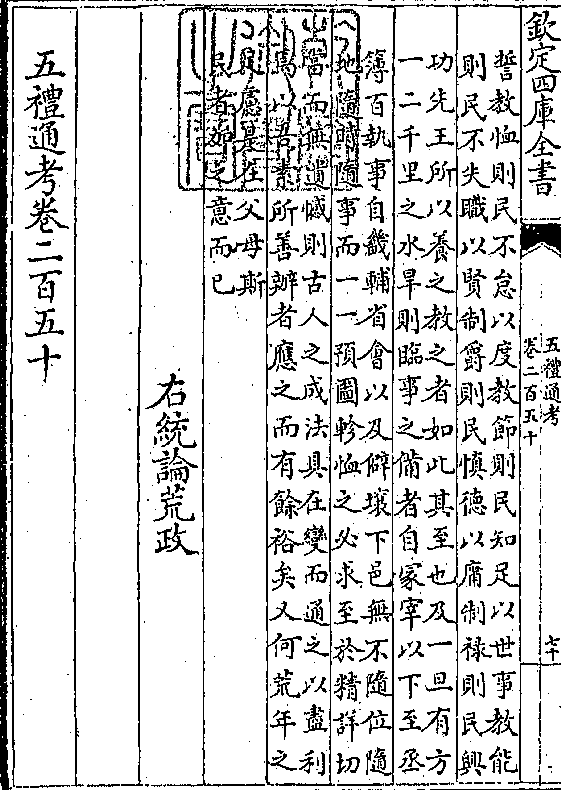 欽定四庫全書
五禮通考
卷二百五十
七十
誓教恤則民不怠以度教節則民知足以世事教能
則民不失職以賢制爵則民慎德以庸制祿則民興
功先王所以養之教之者如此其至也及一旦有方
一二千里之水旱則臨事之備者自冡宰以下至丞
簿百執事自畿輔省會以及僻壤下邑無不隨位隨
地隨時隨事而一一預圖軫恤之必求至於精詳切
當而無遺憾則古人之成法具在變而通之以盡利
焉以吾素所善辦者應之而有餘裕矣又何荒年之
足慮是在父母斯
民者加之意而已
右統論荒政
五禮通考卷二百五十